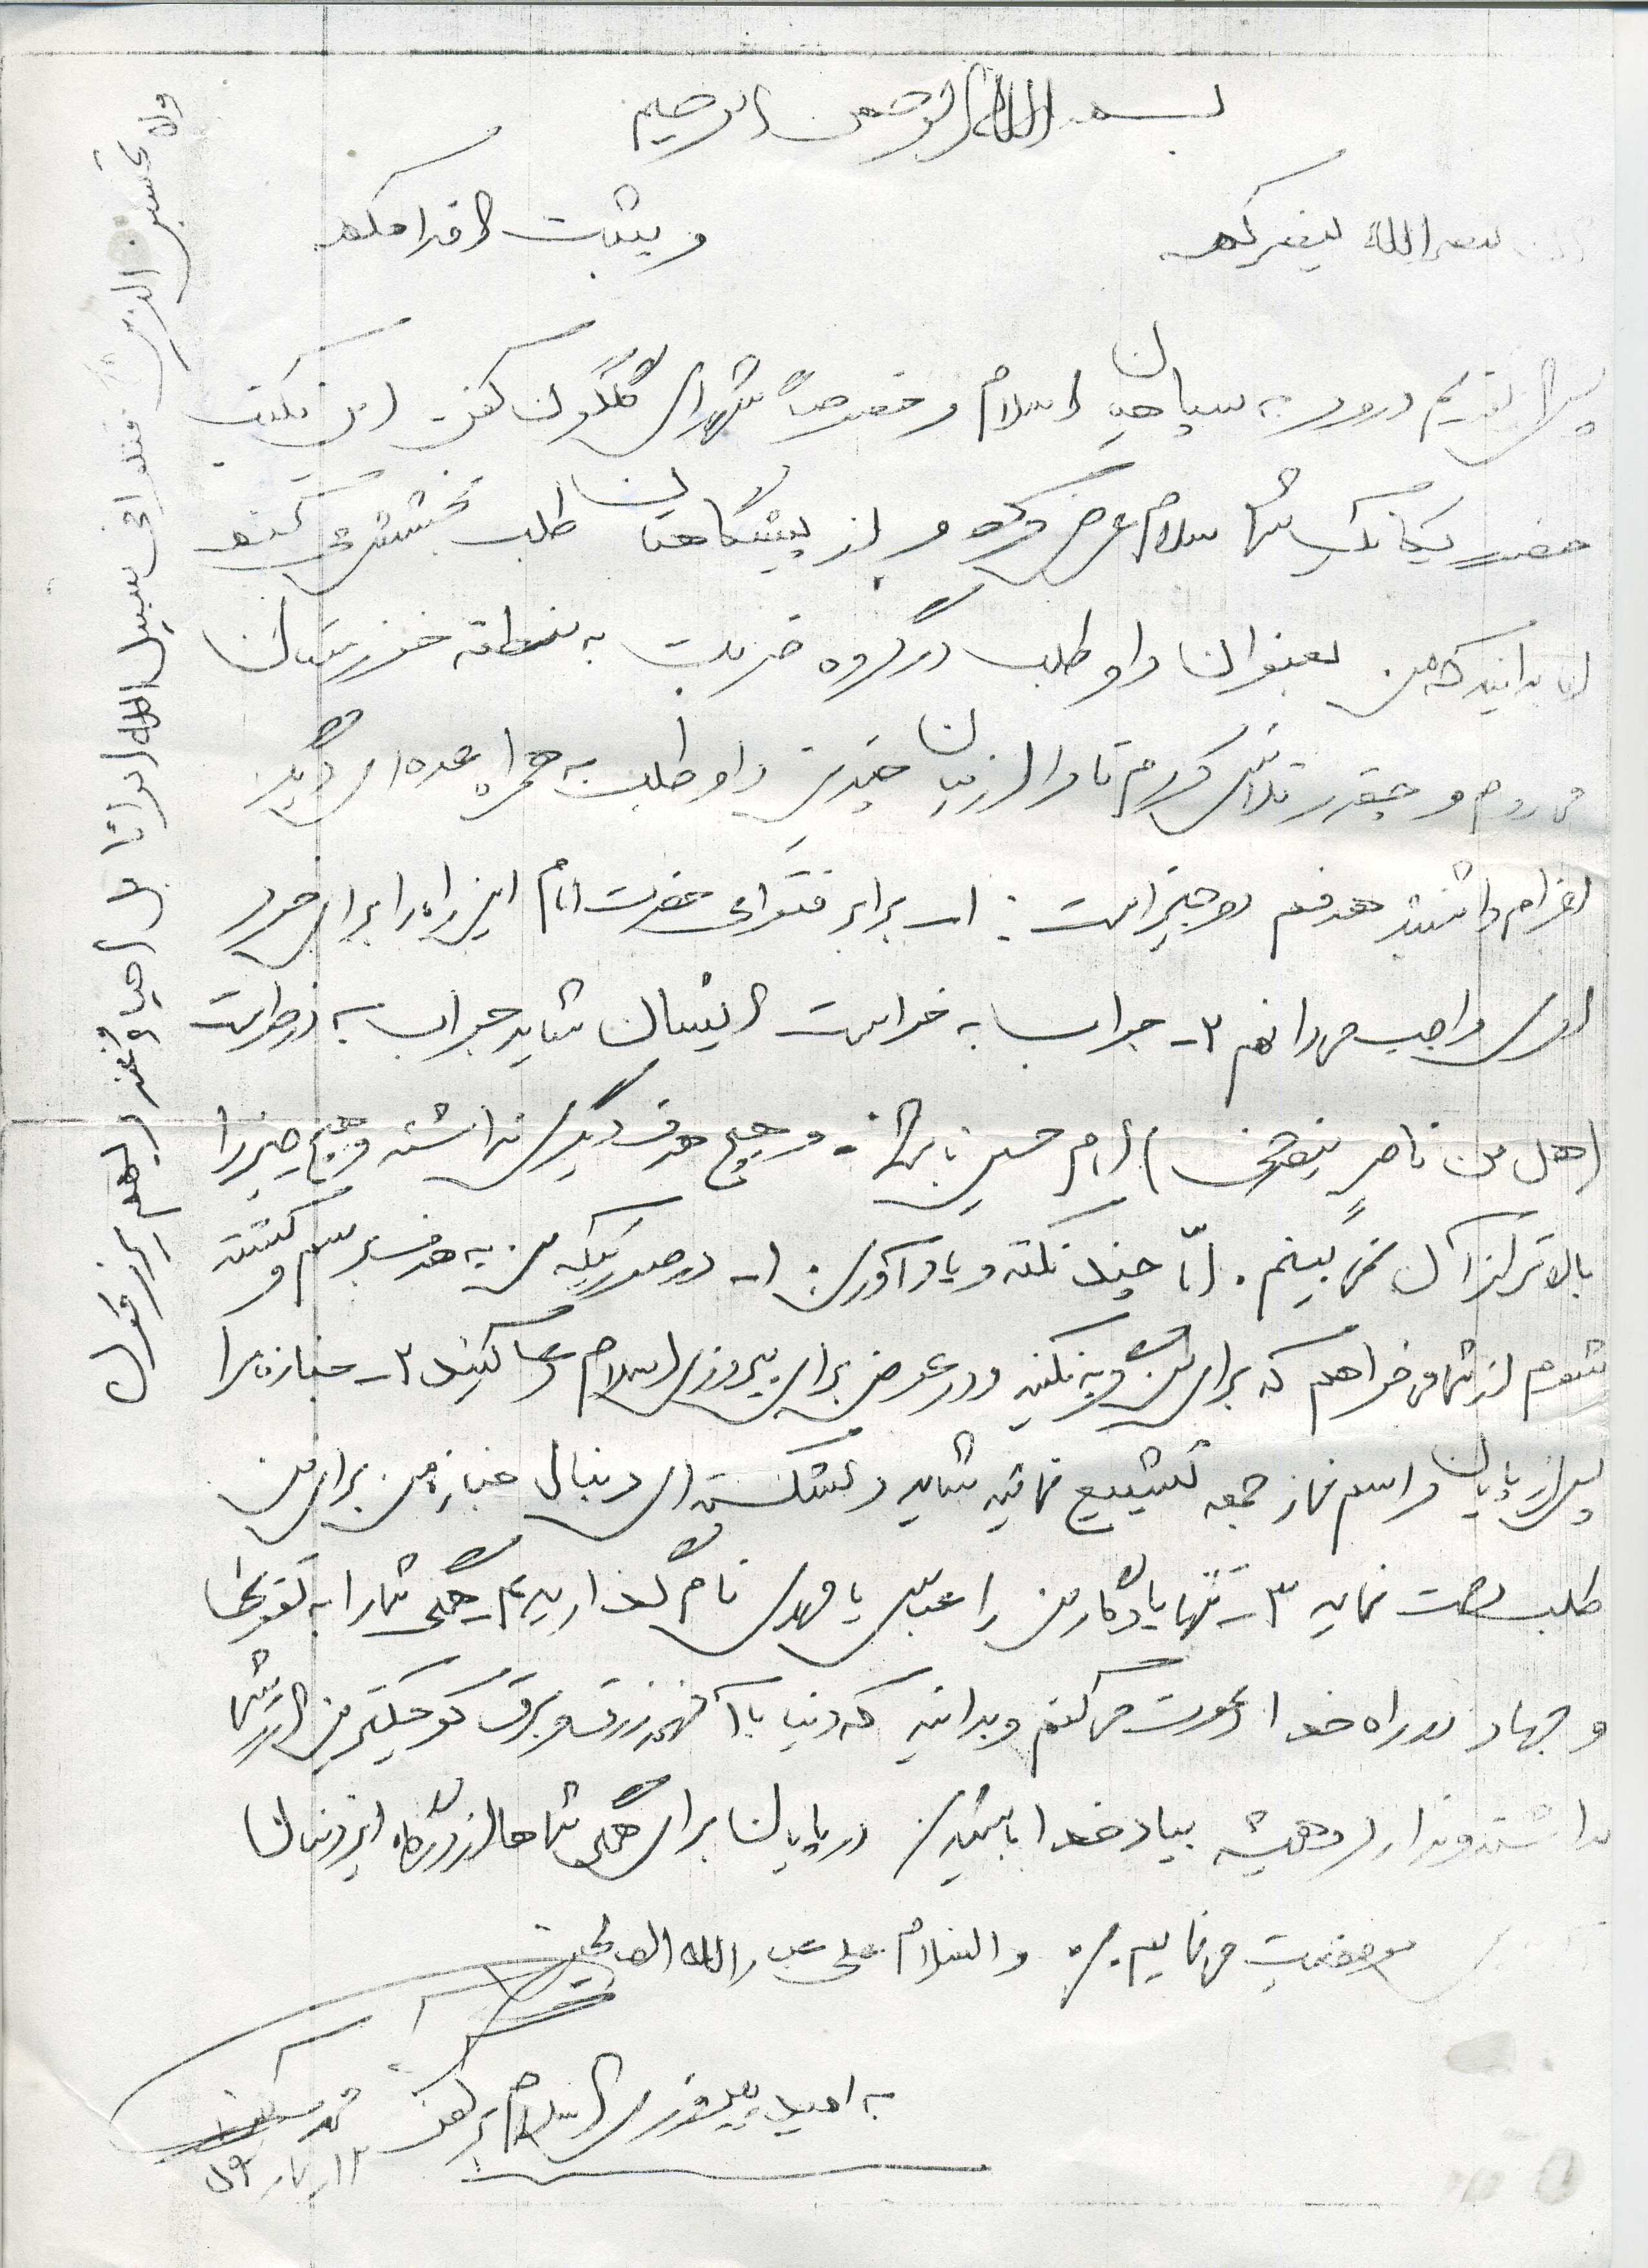 بسم الله الرحمن الرحیم
ان تنصرالله ینصرکم و یثبت اقدامکم
پس از تقدیم درود به سپاهیان اسلام و خصوصاً شهدای گلگون کفن این مکتب
حضور یکایک شما سلام عرض کرده و از پیشگاهتان طلب بخشش می کنم
اما بدانید که من بعنوان داوطلب در گروه ضربت به منطقه خوزستان
می روم و چقدر تلاش کردم تا از میان چندین داوطلب به همراه عده ای دیگر
اعزام داشتند هدفم دو چیز است : ۱- برابر فتوای حضرت امام این راه را برای خود
امری واجب میدانم ۲- جواب به خواست ایشان شاید جواب به درخواست
(هل من ناصرٍ ینصرنی) امام حسین باشد. و هیچ هدف دیگری نداشته و هیچ چیز را
بالاتر از آن نمی بینم. امّا چند نکته و یادآوری: ۱- در صورتیکه من به هدف برسم و کشته
شوم از شما میخواهم که برای من گریه نکنید و در عوض برای پیروزی اسلام دعا کنید ۲- جنازه مرا
پس از پایان مراسم نماز جمعه تشییع نمائید شاید دلشکسته ای دنبال جنازه من برای من
طلب رحمت نماید ۳- تنها یادگار من را عباس یا مهدی نام گذارید ۴- همگی شما را به تقوی خدا
و جهاد در راه خدا دعوت می کنم و بدانید که دنیا با آنهمه زرق و برق کوچکترین ارزشی
نداشته و ندارد و همیشه بیاد خدا باشید. در پایان برای همگی شماها از درگاه ایزد منان
موفقیت می نمایم. والسلام علی عباد الله الصالحین
به امید پیروزی اسلام بر کفر
۵۹
ولا تحسبن الذین قتلوا فی سبیل الله امواتا بل احیاء عند ربهم یرزقون